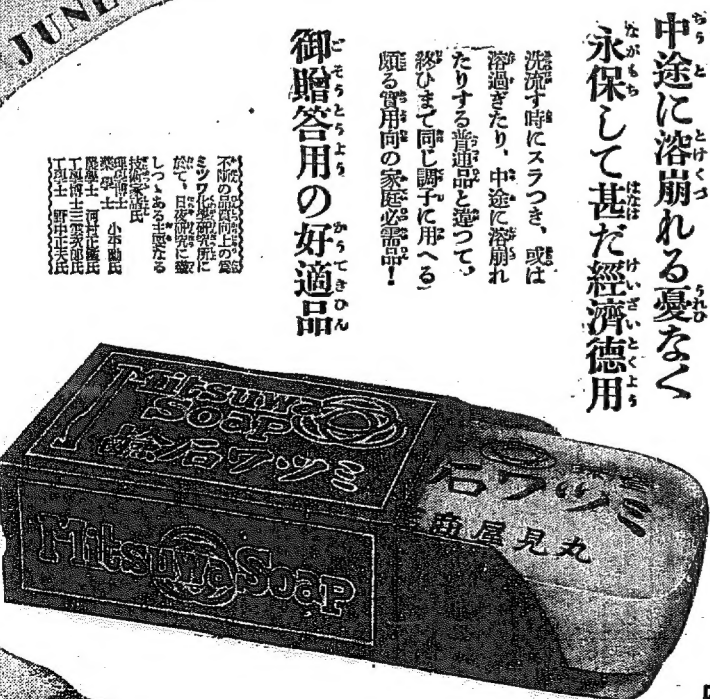 中途に溶崩れる憂なく
永保して甚だ經濟德用
洗流す時にスラつき、或は
溶過ぎたり、中途に溶崩れ
たりする普通品と違つて、
終ひまで同じ調子に用へる
頗る實用向の家庭必需品！
御贈答用の好適品
不斷の品質向上の爲
ミツワ化學研究所に
於て、日夜研究に
しつゝある主要なる
技術家諸氏
理學博士 小平勳氏
藥學士
農學士 河村正義氏
工學博士 三雲次郎氏
工學士 野中正夫氏
JUNE
Mitsuwa
SOAP
ミツワ石鹸
Mitsuwa Soap
ミツワ石
丸見屋商